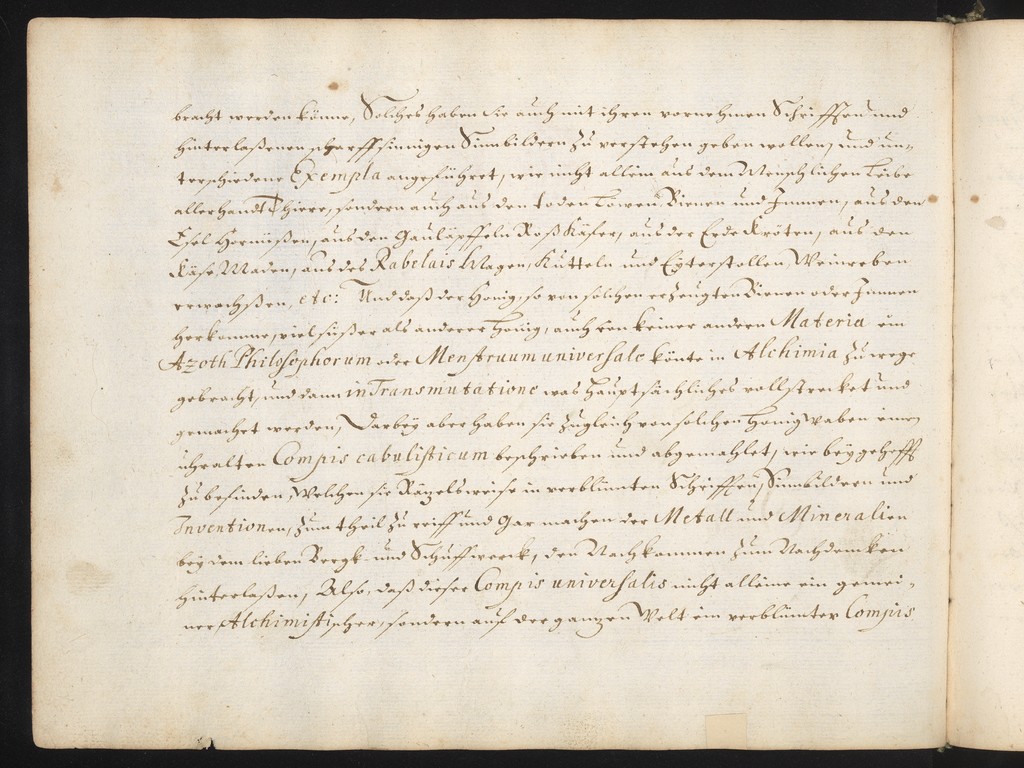 bracht werden könne, Solches haben sie auch mit ihren vornehmen Schrifften und
hinterlaßenen scharffsinnigen Sinnbildern zu verstehen geben wollen, und un-
terschiedene Exempla angeführet, wie nicht allein aus dem Menschlichen Leibe
allerhandt Thiere, sondern auch aus den toden Löwen Bienen und Immen, aus den
Esel Hornüßen, aus den Gauläpffeln Roß Käfer, aus der Erde Kröten, aus den
Käse Maden, aus des Rabelais Magen, Kutteln und Weinreben
erwachßen, etc: Und daß der Honig, so von solchen erzeugten Bienen oder Immen
herkomme, viel süßer als anderer Honig, auch von keiner andern Materia ein
Azoth Philosophorum oder Menstruum universale könte in Alchimia zu wege
gebracht, und dann in Transmutatione was hauptsächliches vollstrecket und
gemachet werden, Darbey aber haben sie zugleich von solchen Honigwaben einen
uhralten Compis cabulisticum beschrieben und abgemahlet, wie beygehefft
zu befinden, Welchen sie Räzelsweise in verblümten Schrifften, Sinnbildern und
Inventionen, zum theil zu reiff und Gar machen der Metall und Mineralien
bey dem lieben Bergk- und Schaffwerck, den Nachkommen zum Nachdencken
hinterlaßen, Also, daß dieser Compis universalis nicht alleine ein gemei-
ner Alchimistischer, sondern auf der ganzen Welt ein verblümter Compis